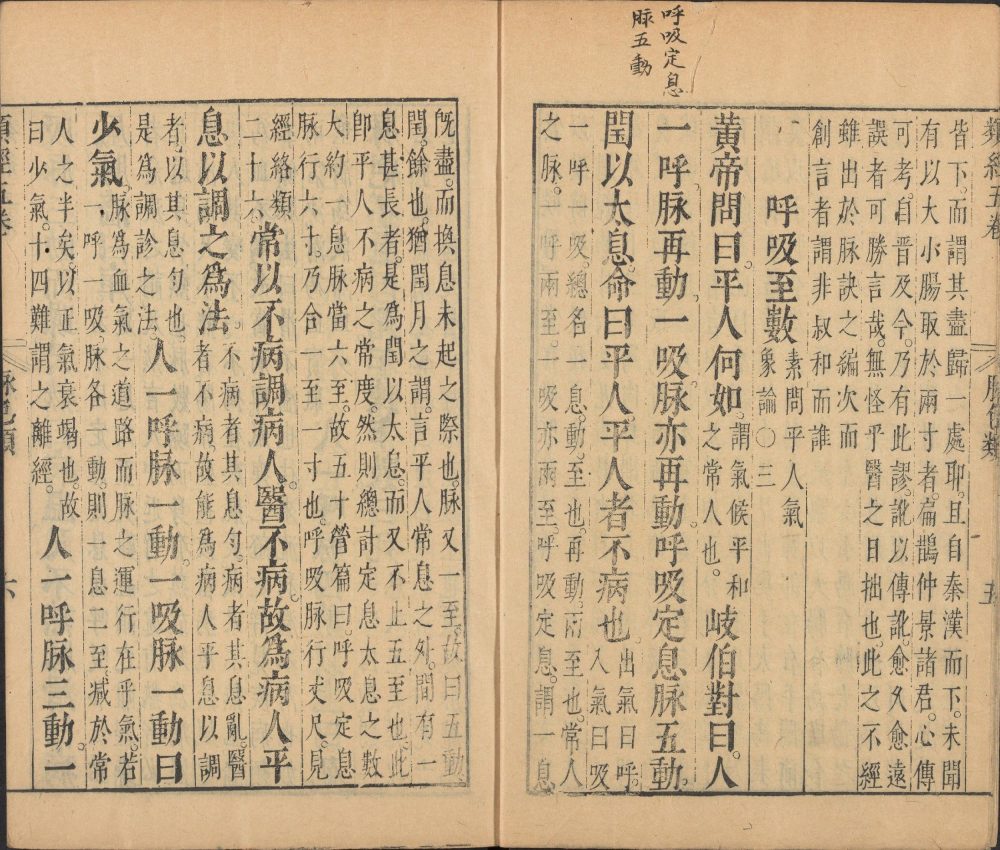 呼吸定息
脉五動
類經五卷
脉色類
五
皆下。而謂其盡歸一處耶。且自秦漢而下。未聞
有以大小腸取於兩寸者。扁鵲仲景諸君。心傳
可考。自晋及今。乃有此謬。訛以傳訛。愈久愈遠
誤者可勝言哉。無怪乎醫之日拙也。此之不經
雖出於脉訣之編次而
創言者謂非叔和而誰
呼吸至數
素問平人氣
象論○三
黃帝問曰平人何如。
謂氣候平和
之常人也。
岐伯對曰。人
一呼脉再動。一吸脉亦再動。呼吸定息脉五動。
閏以太息。命曰平人。平人者不病也
出氣曰呼。
入氣曰吸
一呼一吸。總名一息。動。至也。再動。兩至也。常人
之脉。一呼兩至。一吸亦兩至。呼吸定息。謂一息
旣盡。而換息未起之際也。脉又一至。故曰五動
閏。餘也。猶閏月之謂。言平人常息之外。間有一
息甚長者。是爲閏以太息。而又不止五至也。此
卽平人不病之常度。然則總計定息太息之數
大約一息脉當六至。故五十營篇曰。呼吸定息
脉行六寸。乃合一至一寸也。呼吸脉行丈尺。見
經絡類
二十六
常以不病調病人醫不病故爲病人平
息以調之爲法。
不病者其息勻。病者其息亂。醫
者不病。故能爲病人平息以調
者。以其息勻也。
是爲調診之法。
人一呼脉一動。一吸脉一動曰
少氣。
脉爲血氣之道路而脉之運行在乎氣。若
一呼一吸。脉各一動。則一息二至。減於常
人之半矣。以正氣衰竭也。故
曰少氣。十四難謂之離經。
人一呼脉三動。一
類經五卷
脉色類
六